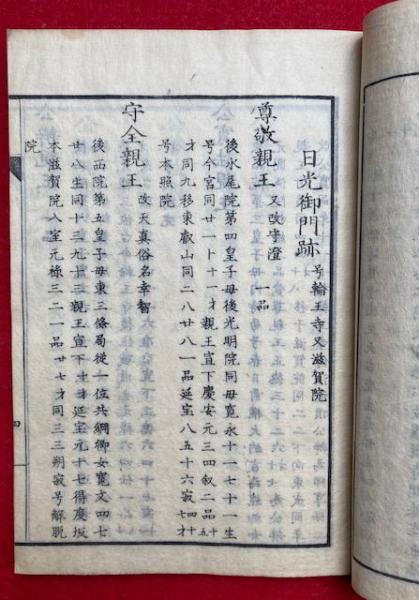 日光御門跡 号輪王寺又滋賀院
尊敬親王 又改守澄 一品
後水尾院第四皇子母後光明院同母寛永十一七十一生
号今宮同廿一十十一才親王宣下慶安元三四叙二品十五
才同九移東叡山同二八廿八一品延宝八五十六寂四十七才
号本照院
守全親王 改天真俗名幸智
後西院第五皇子母東三條局従一位共綱卿女寛文四七
廿八生同十三九十三親王宣下十才延宝元十七得度坂
本滋賀院入室元禄三二一品廿七才同三三朔寂号解脱
院